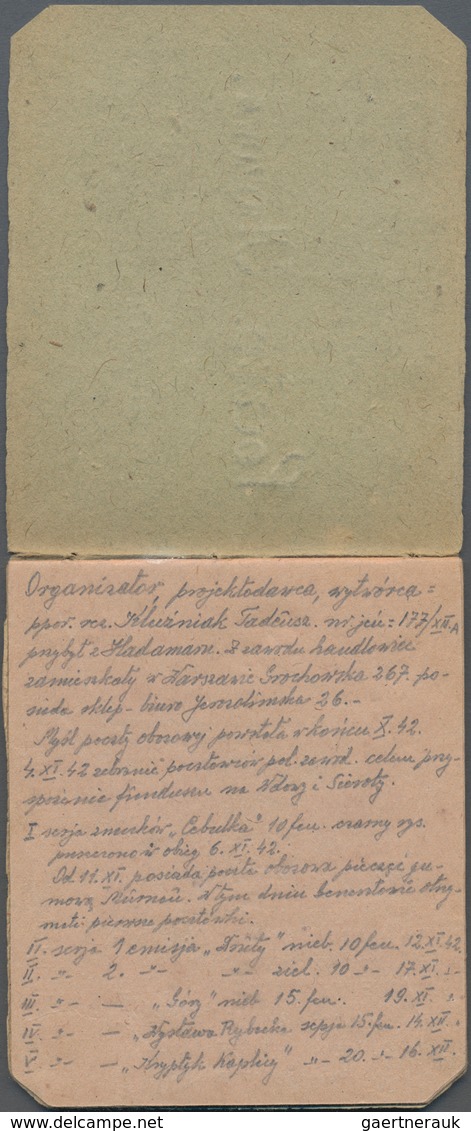 Organizator, projektodawca, wytwórca =
ppor. rez. Kluźniak Tadeusz. nr. jeń = 177/XII.A
przybył z Hadamaru. Z zawodu handlowiec
zamieszkały w Warszawie Grochowska 267. po-
siada sklep-biuro Jerozolimska 26.-
Myśl poczty obozowej powstała w końcu X. 42.
4. XI. 42 zebranie pocztowców pol. zawod. celem przy-
sporzenie funduszu na Wdowy i Sieroty.
I serja znaczków „Cebulka" 10 fen. czarny rys.
puszczono w obieg 6. XI. 42.
Od 11. XI. posiada poczta obozowa pieczęć gu-
mową Murnau. W tym dniu otrzy-
mali pierwsze pocztówki.
II. serja 1 emisja „ nieb. 10 fen. 12. XI. 42.
II. -"- 2. -"- -"- ziel. 10 -"- 17. XI. -"-
III -"- — „Górz" nieb 15. fen. 19. XI. "
IV. -"- — „Wystawa Rybacka sepja 15. fen. 14. XII. "
V -"- — „Tryptyk Kaplicy" -"- 20. -"- 16. XII.
gaertnerauk